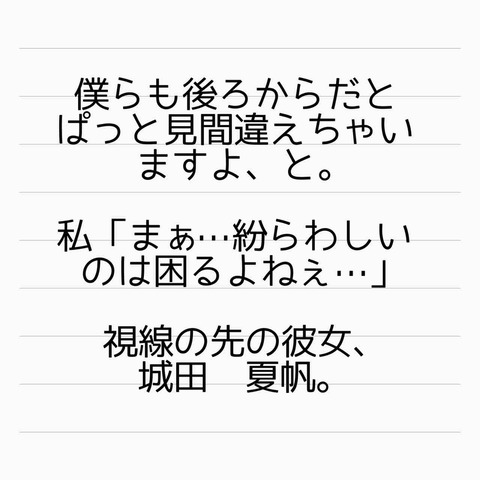 僕らも後ろからだと
ぱっと見間違えちゃい
ますよ、と。
私「まぁ…紛らわしい
のは困るよねぇ…」
視線の先の彼女、
城田　夏帆。